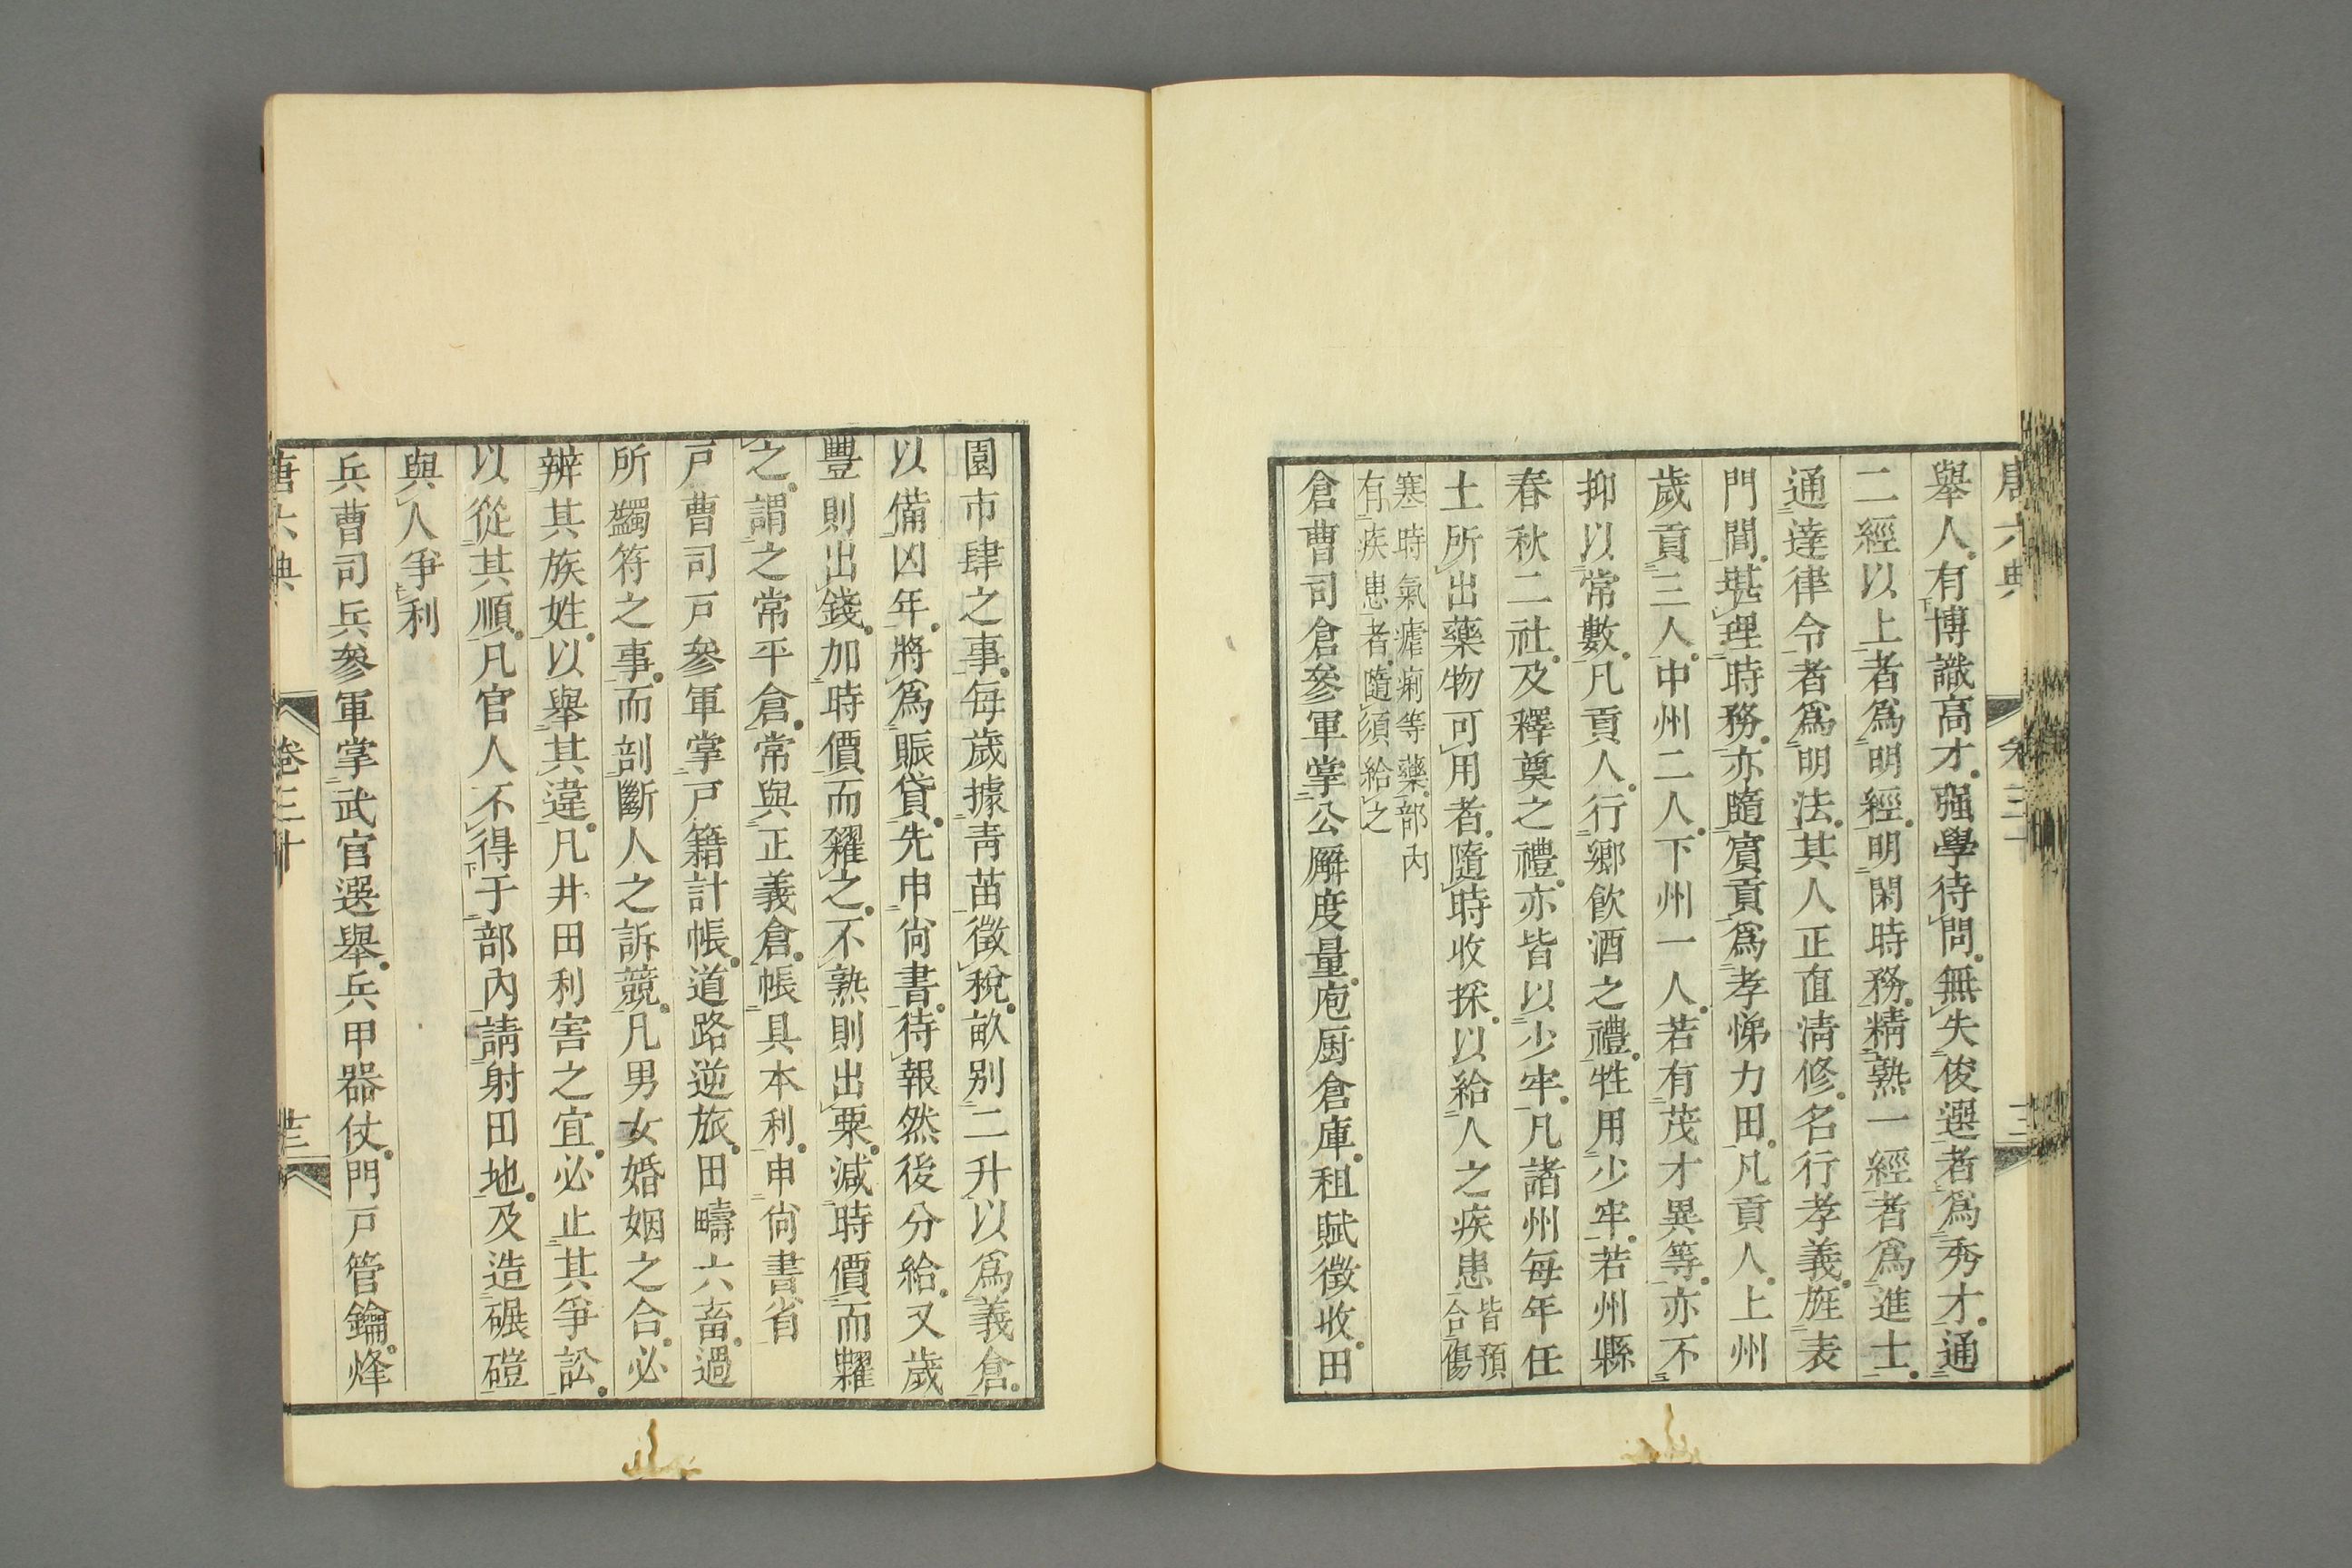 唐六典 卷三十
舉人。有博識高才。强學待問。無失俊選者爲秀才。通
二經以上者爲明經。明閑時務。精熟一經者爲進士。
通達律令者爲明法。其人正直淸修。名行孝義。旌表
門閭。堪理時務。亦隨賓貢。爲孝悌力田。凡貢人。上州
歲貢三人。中州二人。下州一人。若有茂才異等。亦不
抑以常數。凡貢人。行鄉飲酒之禮。牲用少牢。若州縣
春秋二社。及釋奠之禮。亦皆以少牢。凡諸州每年任
土所出藥物可用者。隨時收採。以給人之疾患皆預合傷
寒時氣瘧痢等藥。部內
有疾患者。隨須給之
倉曹司倉參軍掌公廨度量。庖厨倉庫。租賦徵收。田
園市肆之事。每歲據靑苗徵稅。畝別二升以爲義倉。
以備凶年。將爲賑貸。先申尙書。待報然後分給。又歲
豐則出錢。加時價而糴之。不熟則出粟。減時價而糶
之。謂之常平倉。常與正義倉。帳具本利。申尙書省
戸曹司戸參軍掌戸籍計帳。道路逆旅。田疇六畜。過
所蠲符之事。而剖斷人之訴競。凡男女婚姻之合。必
辨其族姓。以舉其違。凡井田利害之宜。必止其爭訟。
以從其順。凡官人不得于部內請射田地。及造碾磑
與人爭利
兵曹司兵參軍掌武官選舉。兵甲器仗。門戸管鑰。烽
唐六典 卷三十 三